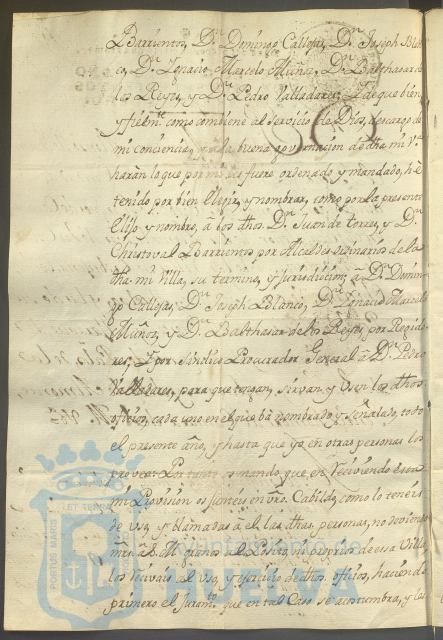 Barrientos, Dn. Domingo Callojas, Dn. Joseph Blan
co, Dn. Ignacio Marcelo Muñoz, Dn. Balthasar de
los Reyes, y Dn. Pedro Valladares, y a que bien
y fielmte. como combiene al servicio de Dios, descargo de
mi conciencia, y a la buena governacion de dha mi Va.
haran lo que por mi les fuere ordenado y mandado, hè
tenido por bien elegir, y nombrar, como por la presente
elijo y nombro, à los dhos Dn. Juan de torres, y Dn.
Christoval Barrientos por Alcaldes ordinarios de la
dha mi Villa, su termino, y Jurisdiction; à Dn. Domin
go Callojas, Dn. Joseph Blanco, Dn. Ignacio Marcelo
Muñoz, y Dn. Balthasar de los Reyes, por Regido
res, y por Sindico Procurador General à Dn. Pedro
Valladares, para que tengan, sirvan, y usen los dhos
oficios, cada uno en el que bà nombrado y señalado, todo
el presente año, y hasta que yo en otras personas los
provea. Por tanto os mando, que en reciviendo esta
mi Provision os junteis en vro. Cabildo, como lo teneis
de uso, y llamadas à el las dhas personas, no deviendo
mrs. ò granos al Posito, ni propios de essa Villa
los recivais al uso, y exercicio de dhos. oficios, haciendo
primero el Juramto. que en tal Caso se acostumbra, y les
PORTUS MARIS
ET TERRAE
Ayuntamiento de
HUELVA